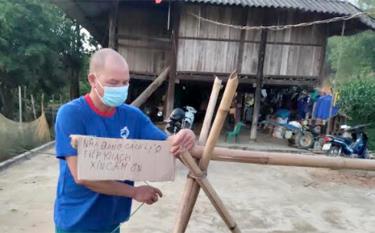 NHÀ ĐANG CÁCH LY O
TIẾP KHÁCH
XIN CẢM ƠN